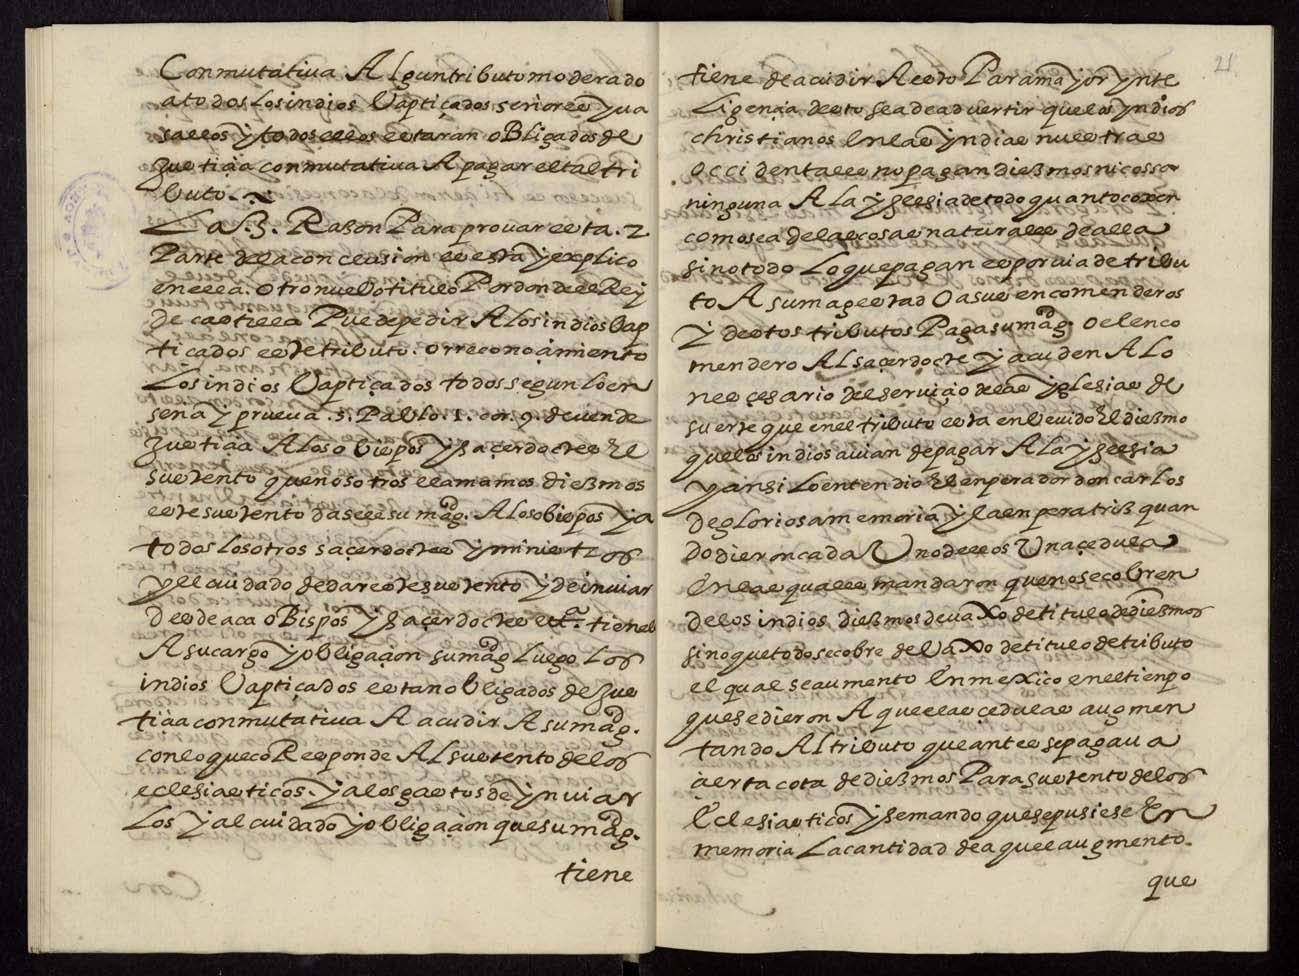 Conmutatiua Algun tributo moderado
a todos los indios Vaptiçados señores y va
sallos y todos ellos estaran obligados de
Justiçia conmutatiua A pagar el tal tri
buto.
La .3. Rason Para prouar esta .2
Parte de la conclusion es esta y explico
en ella. otro nuebo titulo Por donde el Rey
de castilla Puede pedir A los indios bap
tiçados este tributo. o rreconoçimiento
Los indios Vaptiçados todos segun lo en
seña y prueua .s. Pablo 1. cor. 9. deuen de
Justiçia A los obispos y saçerdotes el
sustento que nosotros llamamos diezmos
este sustento dasele su magd. A los obispos y a
todos los otros saçerdotes y ministros
y el cuidado de dar este sustento y de inuiar
Desde aca obispos y saçerdotes etca. tiene
A su cargo y obligaçion su magd Luego Los
indios Vaptiçados estan obligados de Jus
tiçia conmutatiua A acudir A su magd.
con lo que coRresponde Al sustento de los
eclesiasticos. y a los gastos de ynuiar
Los y al cuidado y obligaçion que su magd.
tiene
21
tiene de acudir A esto Para mayor ynte
Ligençia desto se a de advertir que los yndios
christianos En las yndias nuestras
occidentales no pagan diezmos ni cossa
ninguna A la yglesia de todo quanto coxen
como sea de las cosas naturales de alla
sino todo Lo que pagan es por via de tribu
to A su magestad O a sus encomenderos
Y destos tributos Paga su magd. o el enco
mendero Al saçerdote y acuden A lo
neçesario del seruiçio de las yglesias de
suerte que en el tributo esta enbeuido El diezmo
que los indios auian de pagar A la yglesia
y ansi Lo entendio El enperador don carlos
De gloriosa memoria y la enperatriz quan
Do dieron cada Uno dellos Una çedula
En las quales mandaron que no se cobren
de los indios diezmos deuaXo de titulo de diezmos
sino que todo se cobre debaXo de titulo de tributo
el qual se aumento En mexico en el tienpo
que se dieron Aquellas çedulas augmen
tando Al tributo que antes se pagaua
çierta cota de diezmos Para sustento de los
Eclesiasticos y se mando que se pusiese En
memoria La cantidad de aquel augmento.
que